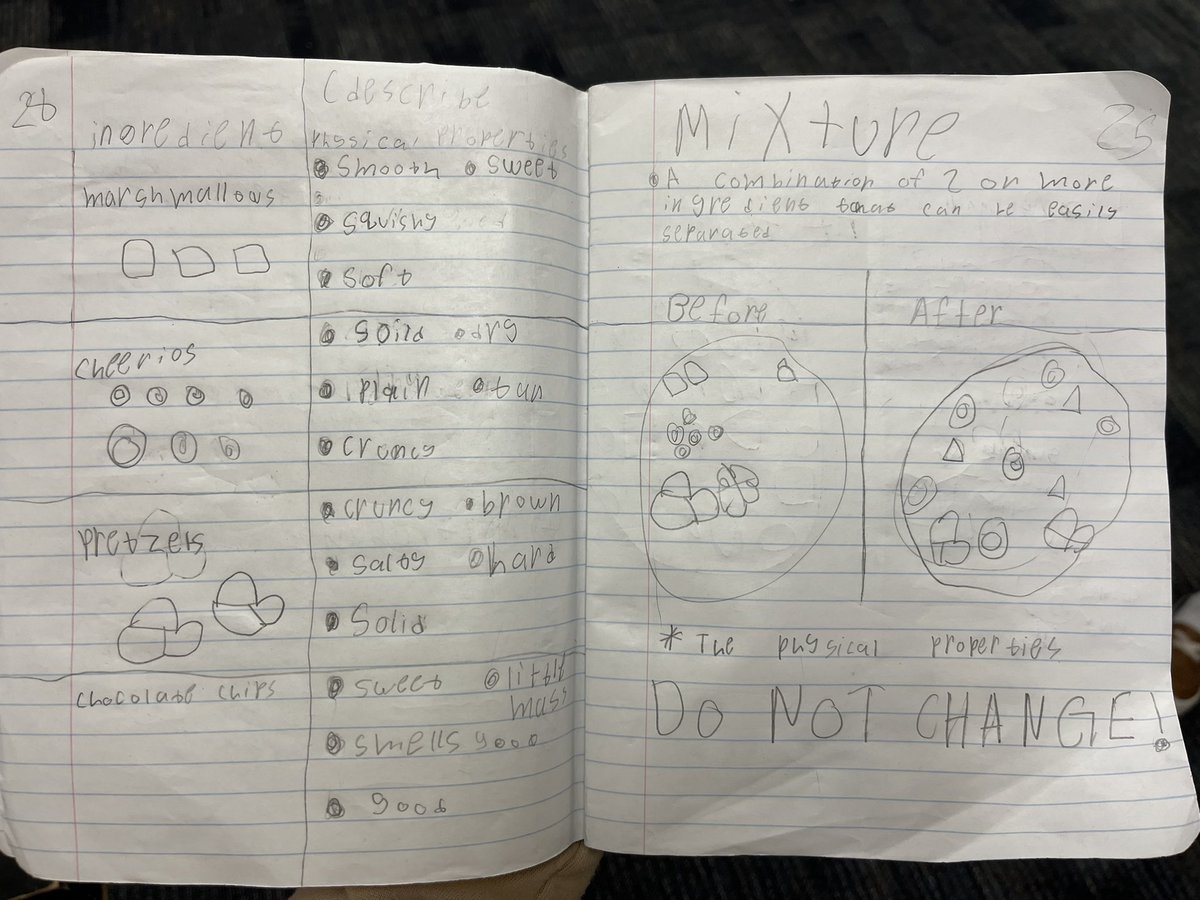 26
ingredient
(describe
Physical Properties
marshmallows
smooth
sweet
squishy
soft
cheerios
soild
dry
plain
tan
cruncy
pretzels
cruncy
brown
salty
hard
Solid
chocolate chips
sweet
little
mass
smells good
good
Mixture
25
A combination of 2 or more
ingredient that can be easily
separated !
Before
After
* The physical properties
DO NOT CHANGE!